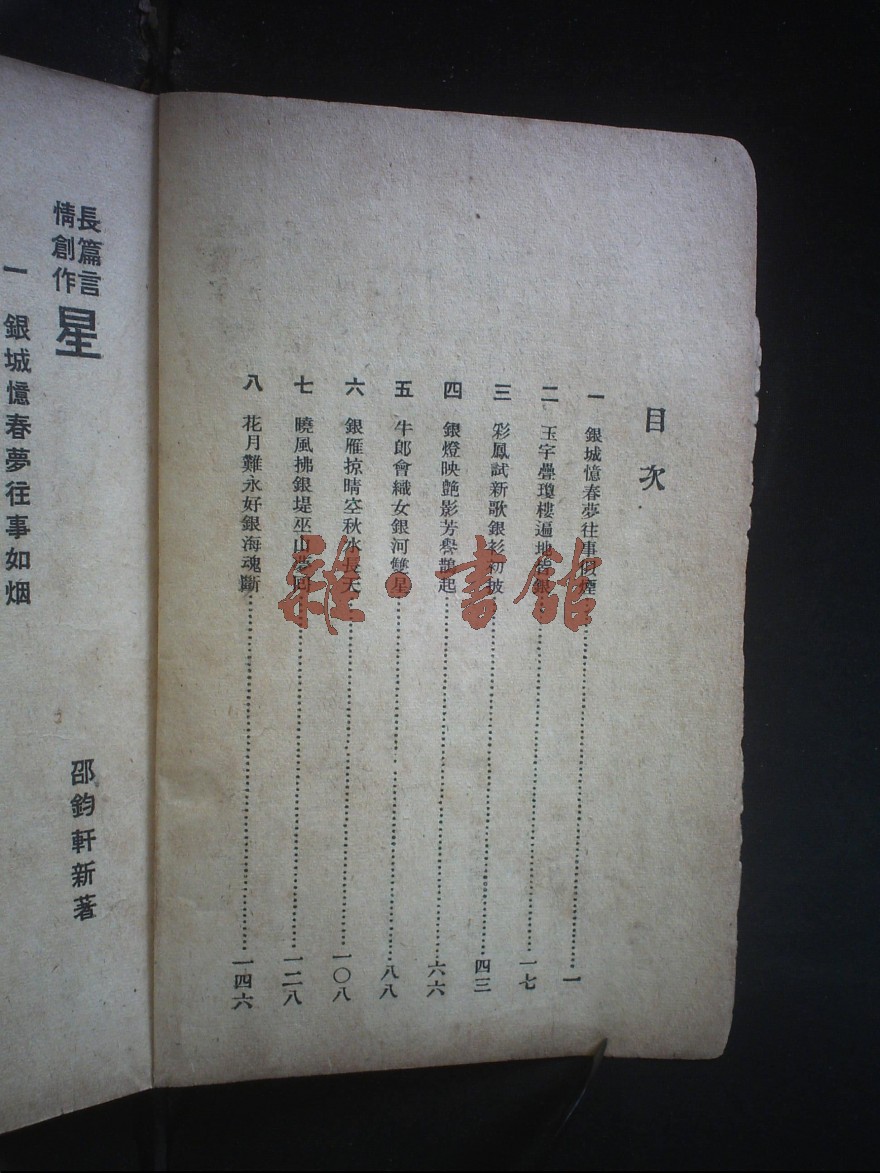 目次
一 銀城憶春夢往事似煙……一
二 玉宇疊瓊樓遍地皆銀……一七
三 彩鳳試新歌銀衫初披……四三
四 銀燈映艶影芳譽鵲起……六六
五 牛郎會織女銀河雙星……八八
六 銀雁掠晴空秋水長天……一〇八
七 曉風拂銀堤巫山夢回……一二八
八 花月難永好銀海魂斷……一四六
長篇言情創作 星
邵鈞軒新著
一 銀城憶春夢往事如烟
雜·書館